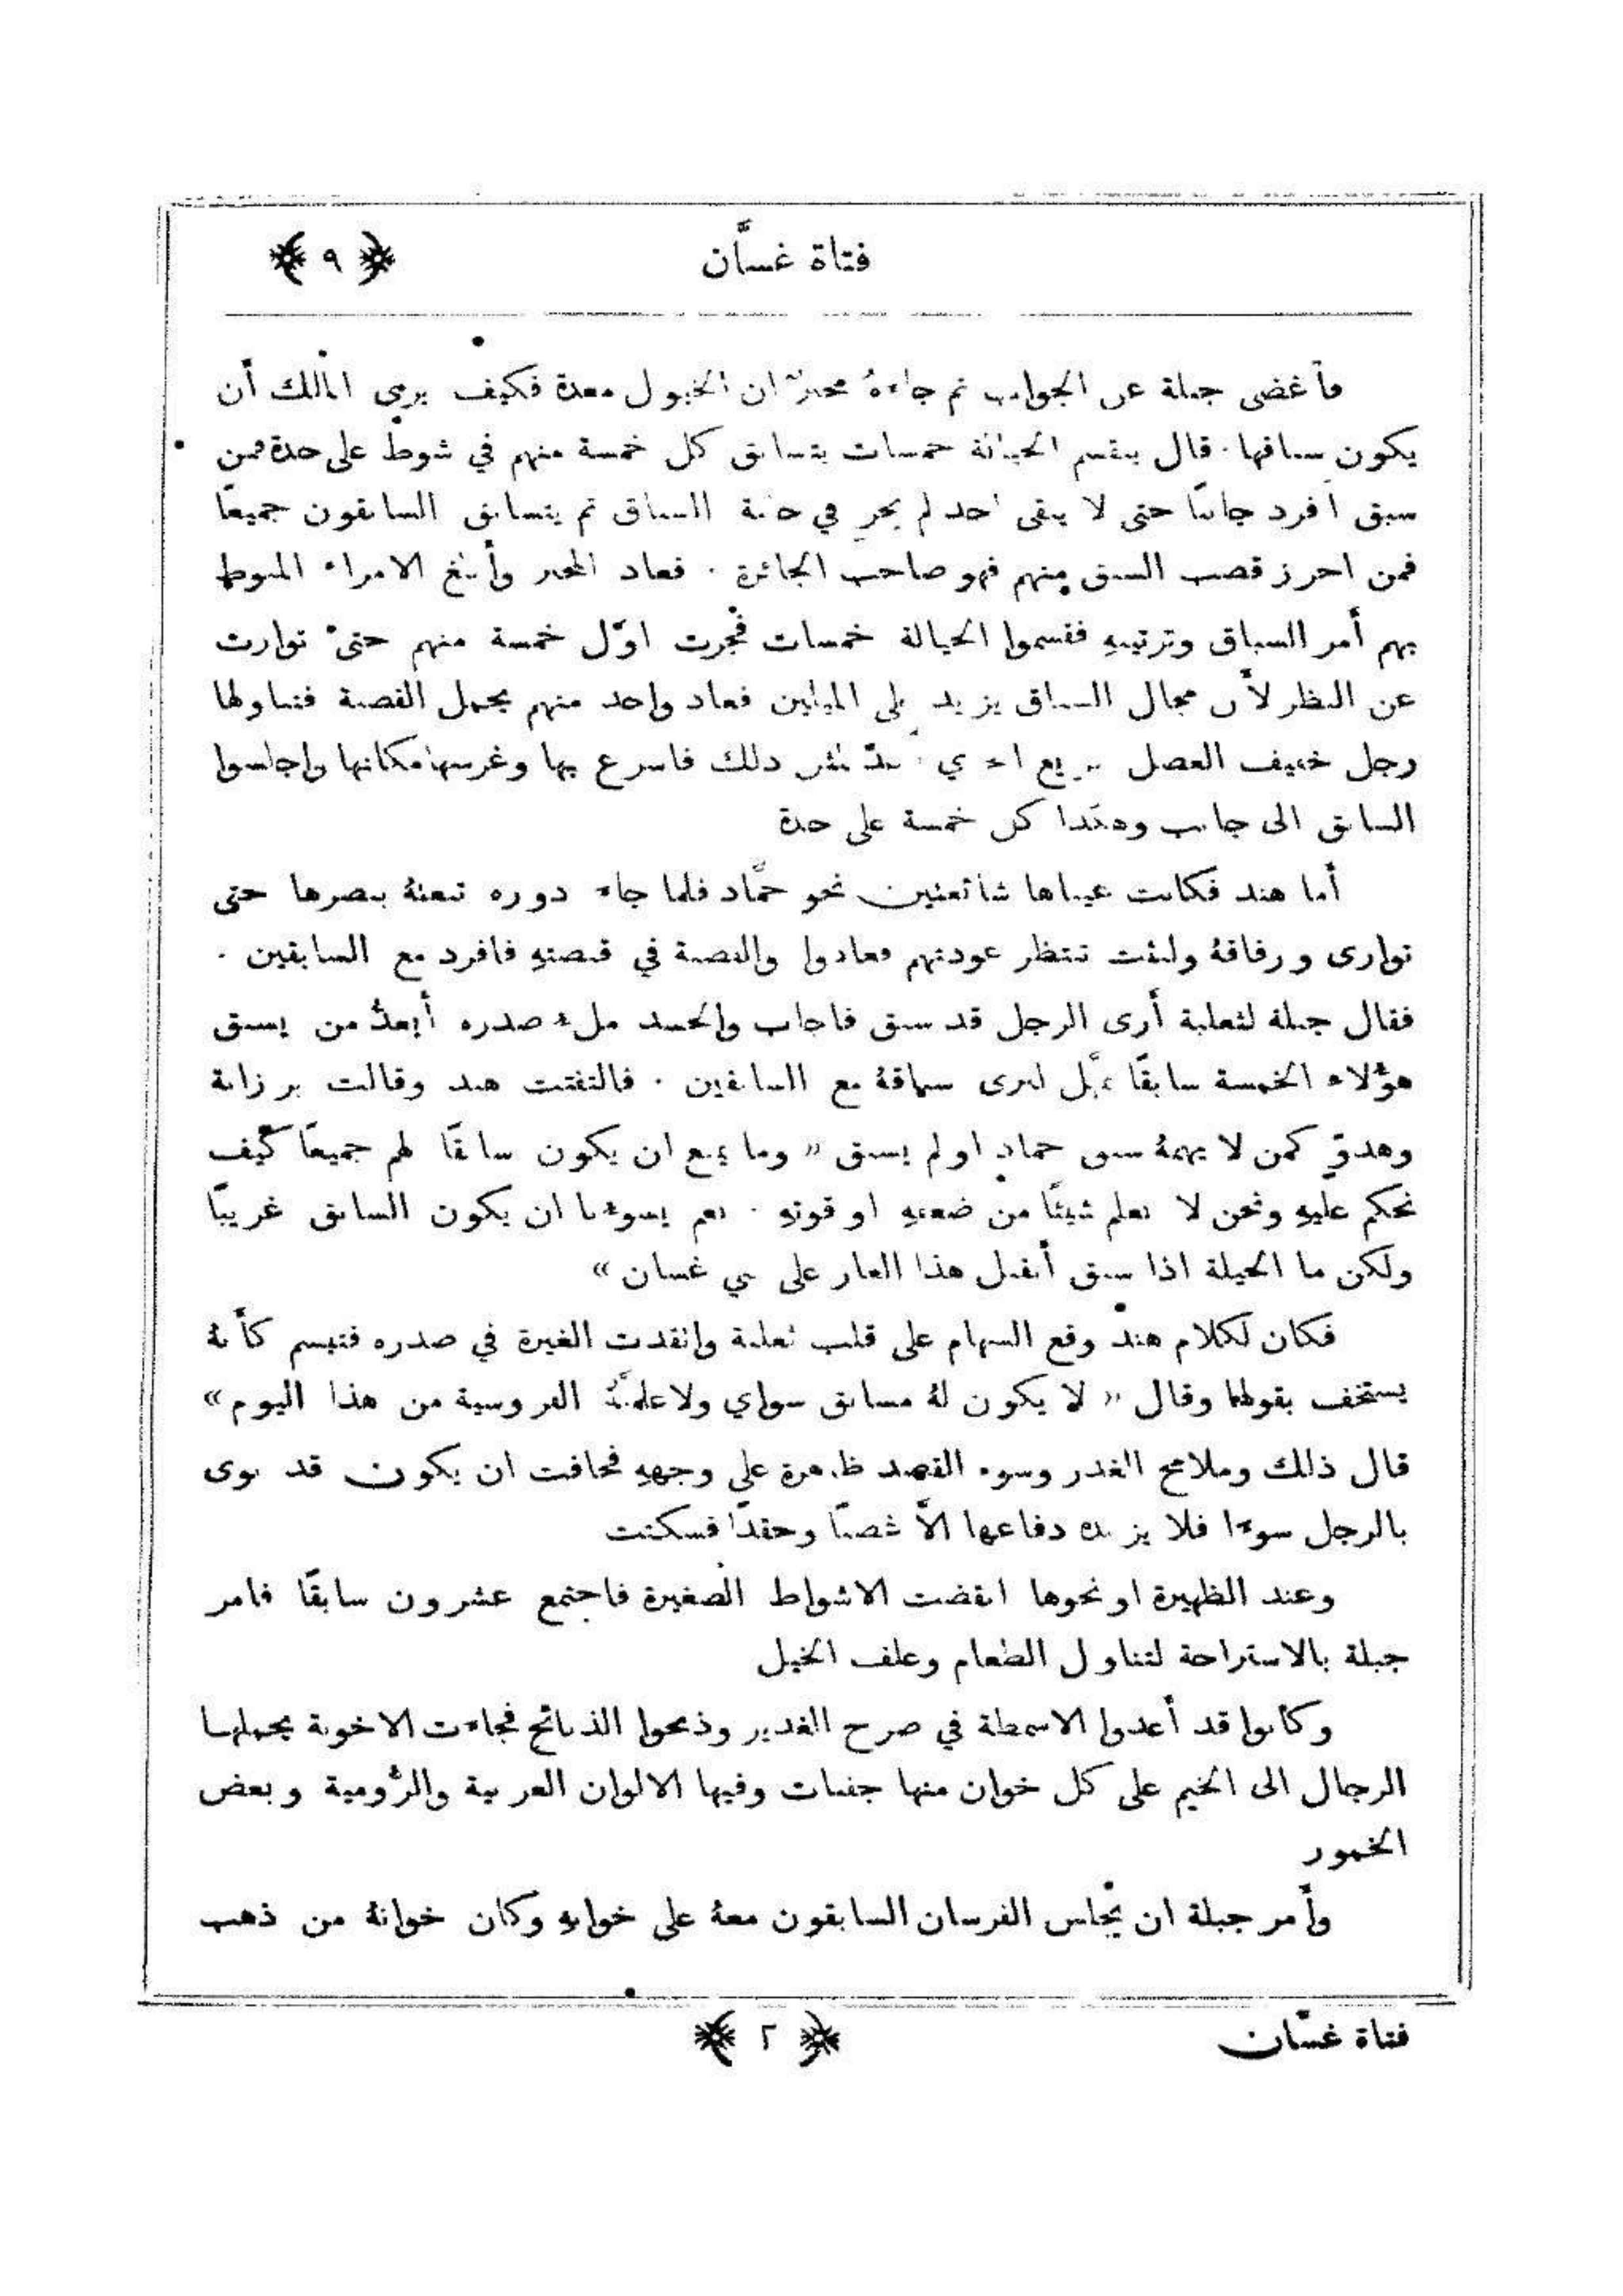 فتاة غسَّان ﴿ ٩ ﴾
فأغضى جبلة عن الجواب ثم جاءهُ مخبرٌ ان الخيول معدة فكيف يرى الملك أن
يكون سباقها. قال يقسم الخيالة خمسات يتسابق كل خمسة منهم في شوط على حدة فمن
سبق أفرد جانبًا حتى لا يبقى احد لم يجرِ في حلبة السباق ثم يتسابق السابقون جميعًا
فمن احرز قصب السبق منهم فهو صاحب الجائزة . فعاد المخبر وأبلغ الامراء المنوط
بهم أمر السباق وترتيبهِ فقسموا الخيالة خمسات فجرت اوَّل خمسة منهم حتى توارت
عن النظر لأن مجال السباق يزيد على الميلين فعاد واحد منهم يحمل القصبة فتناولها
رجل خفيف العضل سريع ذلك فاسرع بها وغرسها مكانها واجلسوا
السابق الى جانب وهكذا كل خمسة على حدة
أما هند فكانت عيناها شائعتين نحو حمَّاد فلما جاء دوره تبعتهُ ببصرها حتى
توارى ورفاقهُ ولبثت تنتظر عودتهم فعادوا والقصبة في قبضتهِ فافرد مع السابقين .
فقال جبلة لثعلبة أرى الرجل قد سبق فاجاب والحسد ملء صدره أيعدُّ من يسبق
هؤلاء الخمسة سابقًا مهَّل لنرى سباقهُ مع السابقين . فالتفتت هند وقالت برزانة
وهدوٍّ كمن لا يهمهُ سبق حماد او لم يسبق « وما يمنع ان يكون سابقًا لهم جميعًا كيف
نحكم عليهِ ونحن لا نعلم شيئًا من ضعفهِ او قوتهِ . نعم يسوءنا ان يكون السابق غريبًا
ولكن ما الحيلة اذا سبق أنقبل هذا العار على بني غسان »
فكان لكلام هند وقع السهام على قلب ثعلبة واتقدت الغيرة في صدره فتبسم كأنهُ
يستخف بقولها وقال « لا يكون لهُ مسابق سواي ولاعلمنَّهُ الفروسية من هذا اليوم »
قال ذلك وملامح الغدر وسوء القصد ظاهرة على وجههِ فخافت ان يكون قد نوى
بالرجل سوءًا فلا يزيده دفاعها الاَّ غضبًا وحقدًا فسكتت
وعند الظهيرة او نحوها انقضت الاشواط الصغيرة فاجتمع عشرون سابقًا فامر
جبلة بالاستراحة لتناول الطعام وعلف الخيل
وكانوا قد أعدوا الاسمطة في صرح الغدير وذبحوا الذبائح فجاءت الاخونة يحملها
الرجال الى الخيم على كل خوان منها جفنات وفيها الالوان العربية والرُّومية وبعض
الخمور
وأمر جبلة ان يجلس الفرسان السابقون معهُ على خوانهِ وكان خوانهُ من ذهب
فتاة غسَّان ﴿ ٢ ﴾